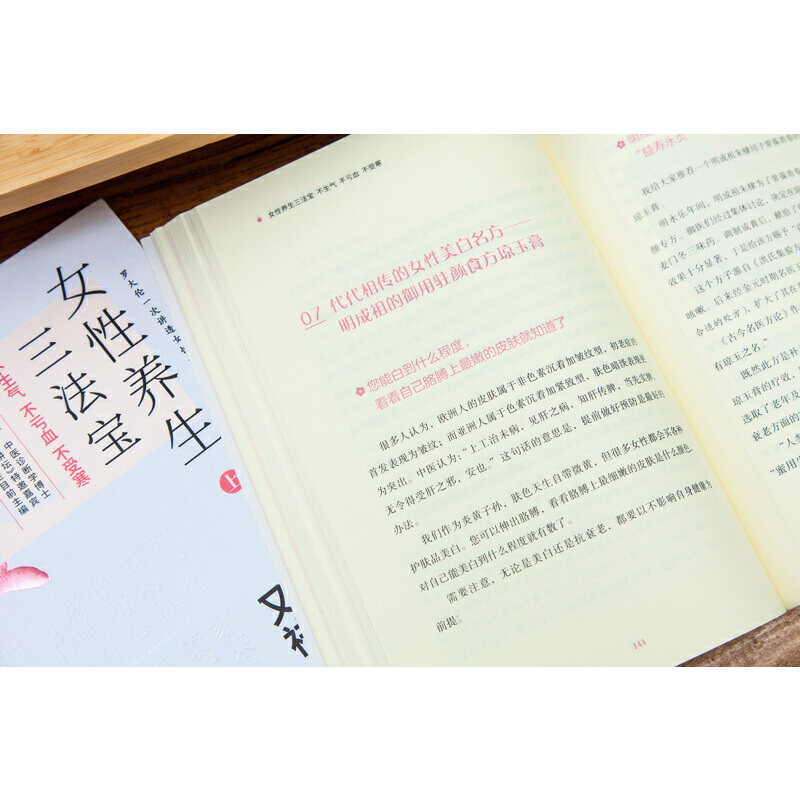 罗大伦一次讲透女
女性养生
三法宝
不生气 不亏血 不受寒
上
中医诊断学博士
特邀嘉宾
前主编
又
女性养生三法宝 不生气 不亏血 不受寒
07 代代相传的女性美白名方——
明成祖的御用驻颜食方琼玉膏
您能白到什么程度,
看看自己胳膊上最嫩的皮肤就知道了
很多人认为,欧洲人的皮肤属于非色素沉着加皱纹型,初老症的
首发表现为皱纹;而亚洲人属于色素沉着加紧致型,肤色暗淡表现更
为突出。中医认为:“上工治未病,见肝之病,知肝传脾,当先实脾,
无令得受肝之邪,安也。”这句话的意思是,提前做好预防是最好的
办法。
我们作为炎黄子孙,肤色天生自带微黄,但很多女性都会买各种
护肤品美白。您可以伸出胳膊,看看胳膊上最细嫩的皮肤是什么颜色,
对自己能美白到什么程度就有数了。
需要注意,无论是美白还是抗衰老,都要以不影响自身健康为
前提。
144
“益寿永贞
我给大家推荐一个明成祖朱棣用于常葆青春
琼玉膏。
明永乐年间,明成祖朱棣为了常葆青春
颜专方。御医们经过集体讨论,决定在
麦门冬三味药。调制成膏后,献给
效果十分显著,于是给该方赐予“
这个方子源自《洪氏集验方
咳嗽。后来经金元时期名医
合适的处方),扩大了其在
《古今名医方论》作
有琼玉之名。”
既然此方是补
琼玉膏的疗效,
选取了老年及
衰老方面的
“人
“蜜用生